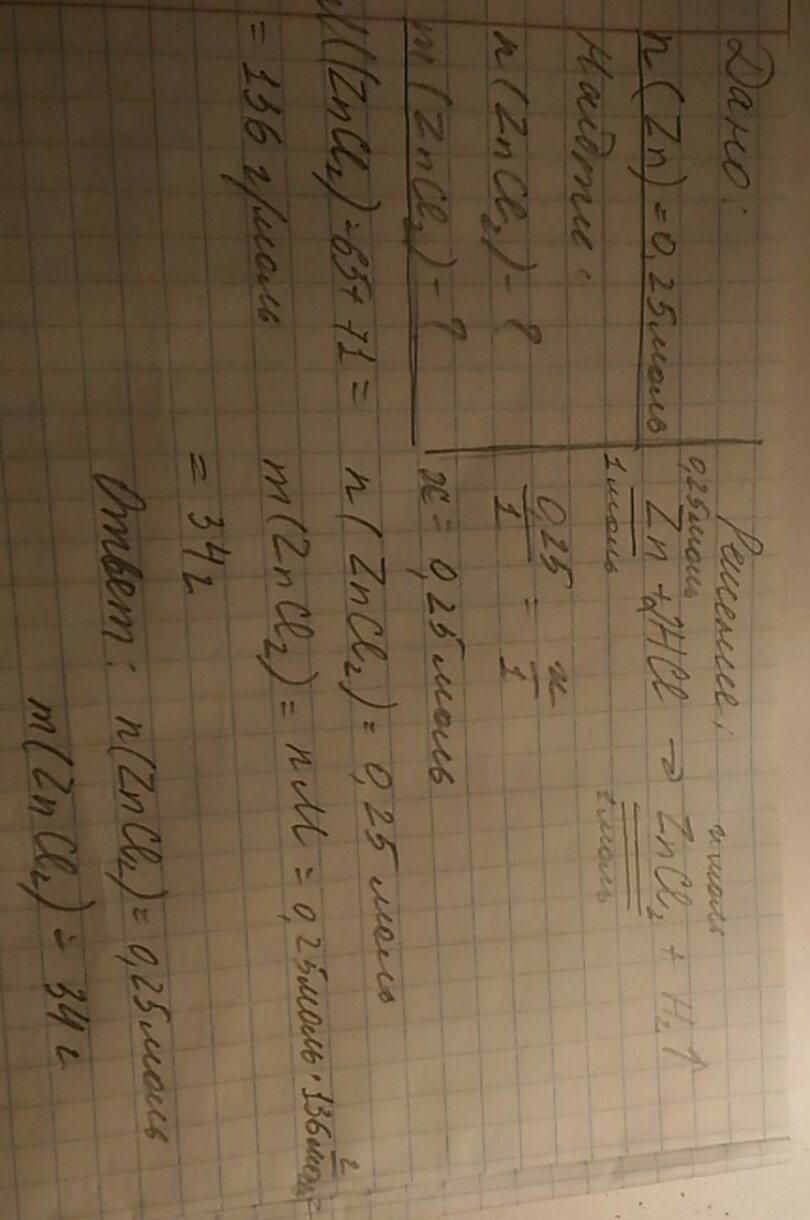 Дано:
n(Zn) = 0,25 моль
Найдти:
n(ZnCl₂) - ?
m(ZnCl₂) - ?
M(ZnCl₂) - 65 + 71 =
= 136 г/моль
Решение:
0,25 моль x моль
Zn + 2HCl → ZnCl₂ + H₂↑
1 моль 1 моль
0,25/1 = x/1
x = 0,25 моль
n(ZnCl₂) = 0,25 моль
m(ZnCl₂) = nM = 0,25 моль · 136 г/моль =
= 34 г
Ответ: n(ZnCl₂) = 0,25 моль
m(ZnCl₂) = 34 г